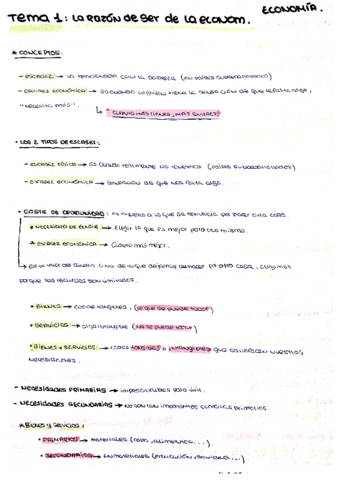 ECONOMÍA.
Tema 1: La razón de ser de la econom.
* CONCEPTOS:
- ESCASEZ → La relacionada con la pobreza (en países subdesarrollados)
- ESCASEZ ECONÓMICA → Es cuando alguien tiene la sensación de que le falta algo,
"necesita más".
↳ "CUANTO MÁS TIENES, MÁS QUIERES"
* LOS 2 TIPOS DE ESCASEZ:
- ESCASEZ FÍSICA → Es cuando realmente no tenemos (países subdesarrollados)
- ESCASEZ ECONÓMICA → Sensación de que nos falta algo.
* COSTE DE OPORTUNIDAD: es a lo que se renuncia por hacer otra cosa
* NECESIDAD DE ELEGIR → Elegir lo que es mejor para uno mismo.
* ESCASEZ ECONÓMICA → Cuanto más mejor.
→ Es el valor del dinero o no de lo que dejamos de hacer por otra cosa.
porque los recursos son limitados.
* BIENES → cosas tangibles. (lo que se puede tocar)
* SERVICIOS → algo intangible (no se puede tocar)
* BIENES Y SERVICIOS: → cosas tangibles o intangibles que satisfacen nuestras
necesidades.
- NECESIDADES PRIMARIAS → imprescindibles para vivir.
- NECESIDADES SECUNDARIAS → No son tan importantes como las primarias.
* Bienes y servicios:
* PRIMARIOS → materiales (ropa, alimentos...)
* SECUNDARIOS → inmateriales (educación, sanidad...)